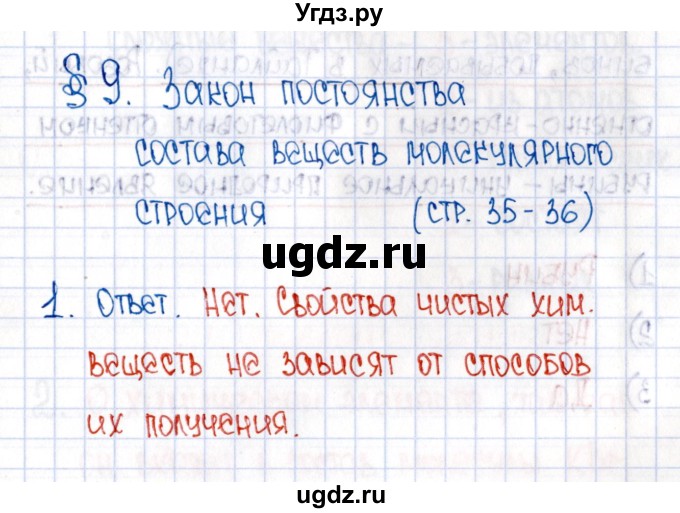 Угдз.ру
§ 9. Закон постоянства
состава веществ молекулярного
строения (стр. 35-36)
ugdz.ru
1. Ответ. Нет. Свойства чистых хим.
веществ не зависят от способов
их получения.
ugdz.ru